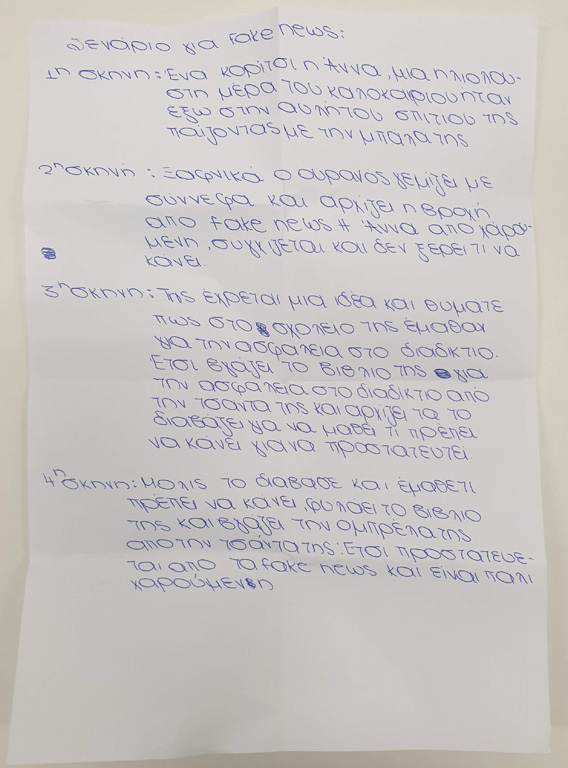 Σενάριο για fake news:
1η σκηνή: Ένα κορίτσι η Άννα, μια ηλιόλου-
στη μέρα του καλοκαιριού ήταν
έξω στην αυλή του σπιτιού της
παίζοντας με την μπάλα της
2η σκηνή: Ξαφνικά ο ουρανός γεμίζει με
σύννεφα και αρχίζει η βροχή
από fake news. Η Άννα από χαρου-
μένη, συγχίζεται και δεν ξέρει τι να
κάνει.
3η σκηνή: Της έχρεται μια ιδέα και θυμάτε
πως στο σχολείο της έμαθαν
για την ασφάλεια στο διαδίκτιο.
Έτσι βγάζει το βιβλίο της για
την ασφάλεια στο διαδίκτιο από
την τσάντα της και αρχίζει τα το
διαβάζει για να μάθει τι πρέπει
να κάνει για να προστατευτεί
4η σκηνή: Μόλις το διάβασε και έμαθε τι
πρέπει να κάνει, φυλάει το βιβλίο
της και βγάζει την ομπρέλα της
από την τσάντα της. Έτσι προστατευε-
ται από τα fake news και είναι πάλι
χαρούμενη